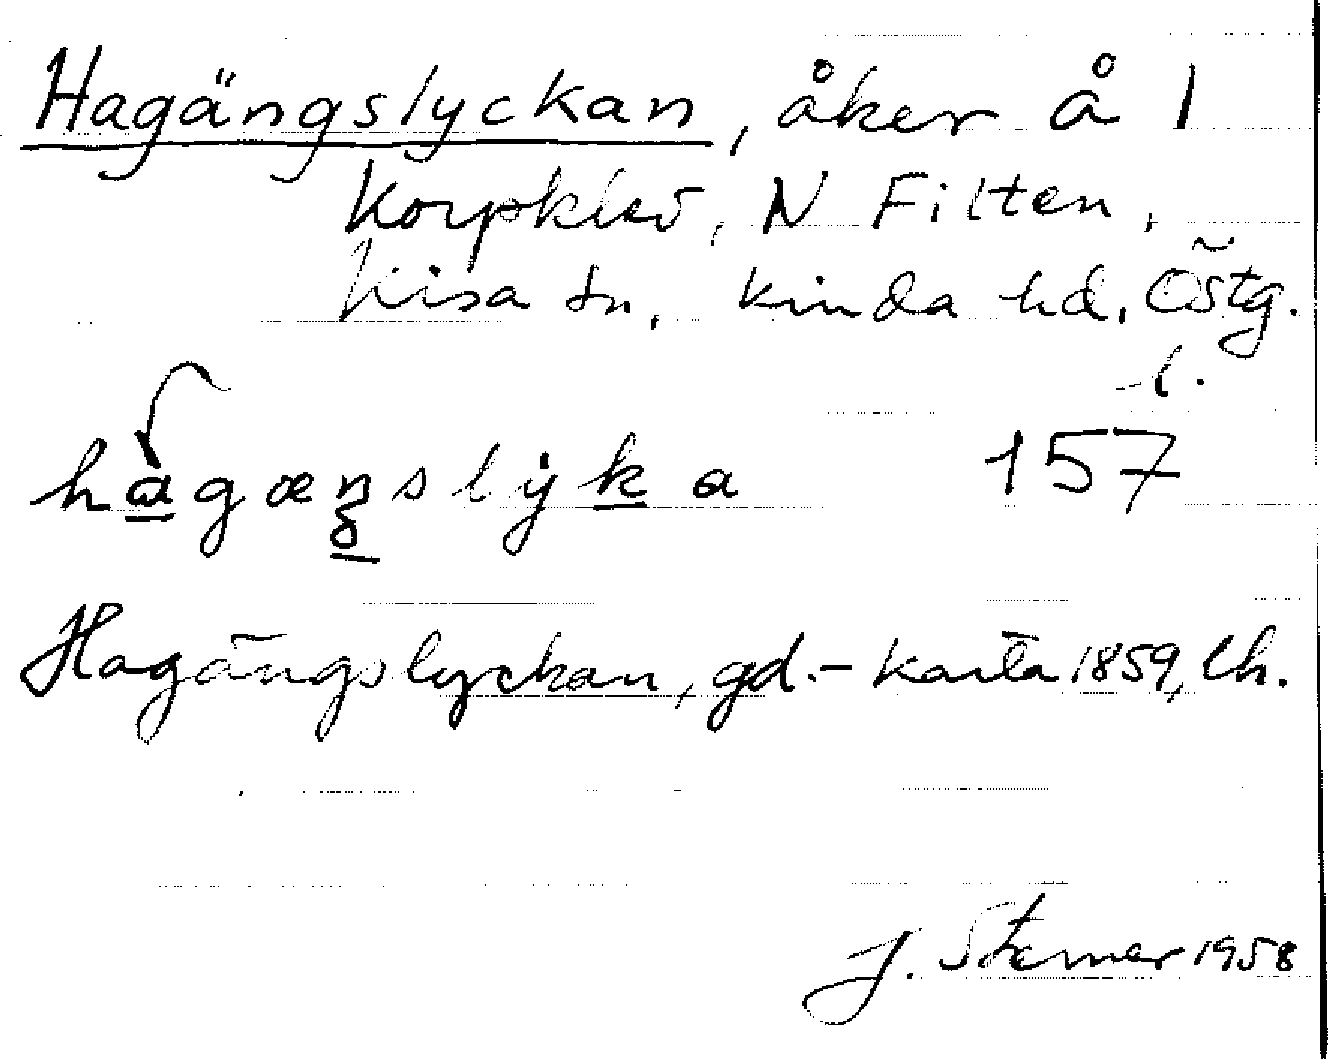 Hagängslyckan, åker å 1
Korpklev, N Filten,
Kisa sn, Kinda hd, Östg.
l.
157
Hagängslyckan, gd.- karta 1859, lh.
J. Sterner 1958